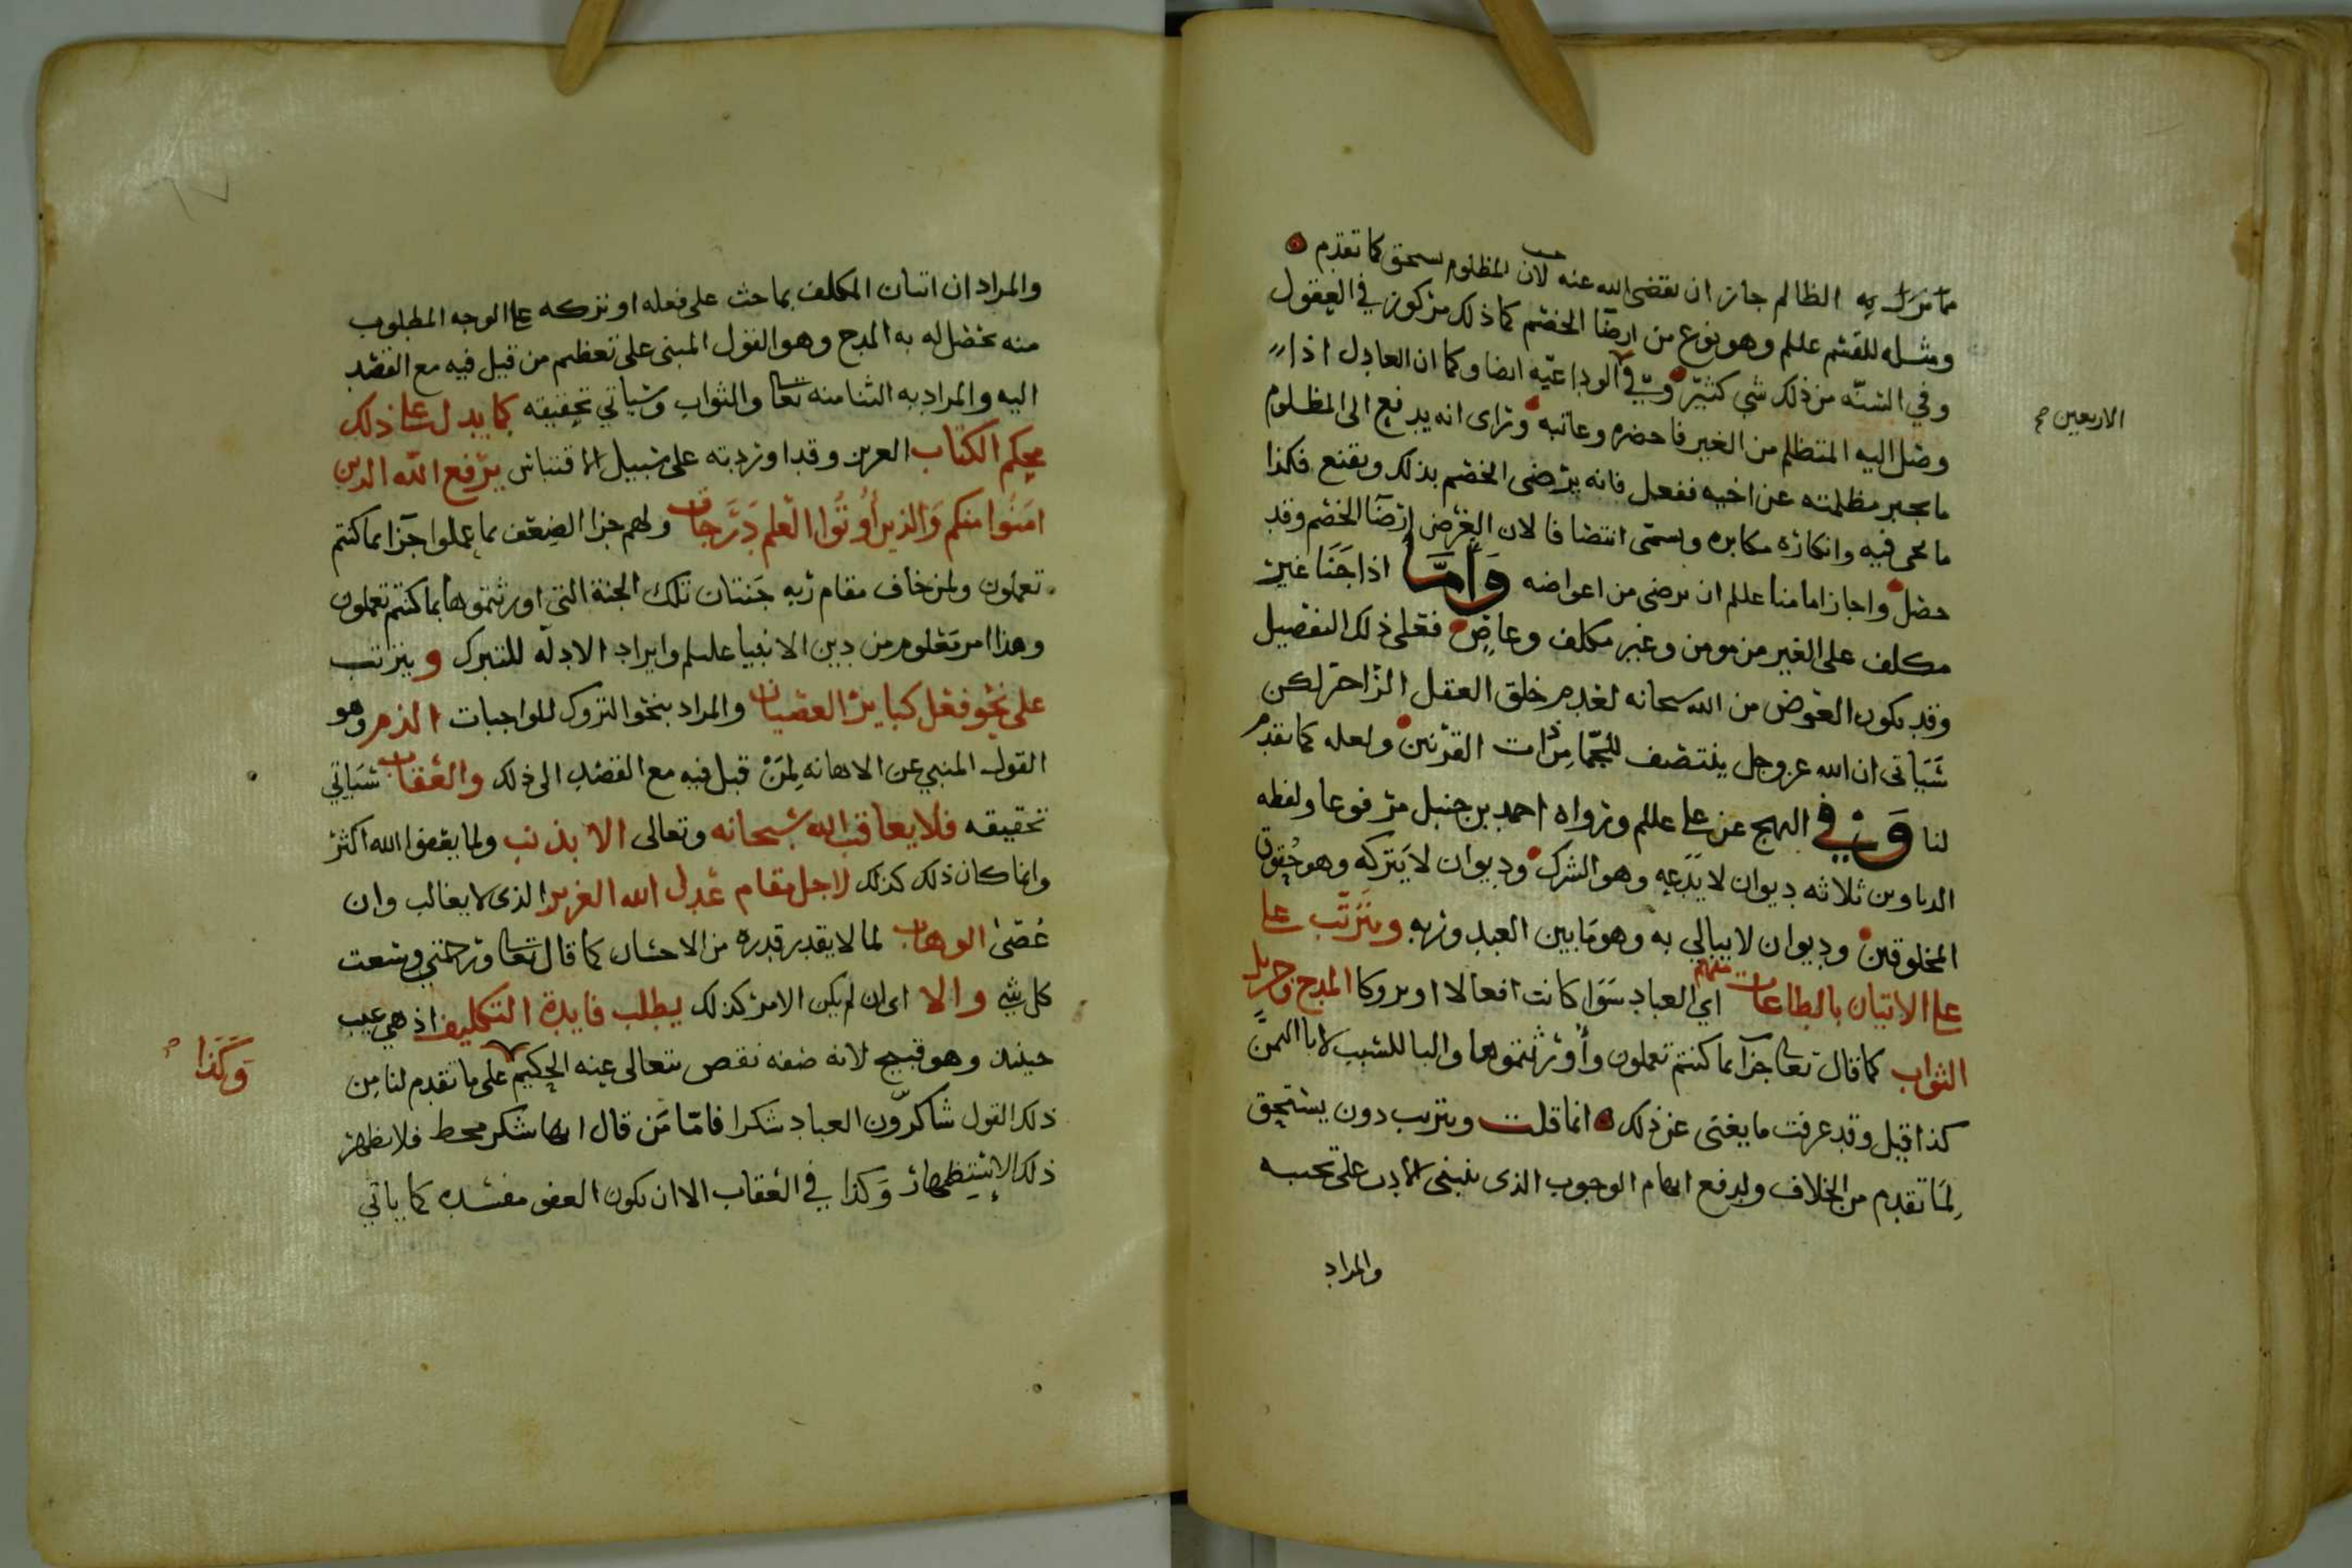 مما نزل به الظالم جاز ان يقضى الله عنه لان المظلوم يستحق كما تقدم
ومثله للقسم عليلم وهو نوع من ارضا الخصم كما ذلك مركوز في العقول
وفي السنه من ذلك شي كثير وفي الوداعيه ايضا وكما ان العادل اذا
وصل اليه المتظلم من الغير فاحضره وعاتبه وتراى انه يدفع الى المظلوم
ما يجبر مظلمته عن اخيه ففعل فانه يرضى الخصم بذلك ويقنع فكذا
ما نحى فيه وانكاره مكابره ويسمى انتصافا لان الغرض ارضا الخصم وقد
حصل واجاز امامنا عليلم ان يرضى من اعواضه وأمّا اذا جنا غير
مكلف على الغير من مومن وغير مكلف وعاض فعلى ذلك التفصيل
وقد يكون العوض من الله سبحانه لعدم خلق العقل الزاجر لكن
سياتى ان الله عز وجل ينتصف للجما من ذات القرنين ولعله كما تقدم
لنا وفي النهج عن علي عليلم ورواه احمد بن حنبل مرفوعا ولفظه
الدواوين ثلاثه ديوان لا يدعه وهو الشرك وديوان لا يتركه وهو حقوق
المخلوقين وديوان لا يبالي به وهو ما بين العبد وربه ويترتب على
على الاتيان بالطاعات منهم اي العباد سوا كانت افعالا او تروكا المدح وجزيل
الثواب كما قال تعا جزآ بما كنتم تعملون وأورثتموها والبا للسبب لا با الثمن
كذا قيل وقد عرفت ما يغنى عن ذلك انما قلت ويترتب دون يستحق
لما تقدم من الخلاف ولدفع ايهام الوجوب الذى ينبنى الادب على تجنبه
والمراد
الاربعين صح
والمراد ان اتيان المكلف بما حث على فعله او تركه على الوجه المطلوب
منه يحصل له به المدح وهو القول المبنى على تعظيم من قيل فيه مع القصد
اليه والمراد به الثنا منه تعا والثواب وسياتي تحقيقه كما يدل على ذلك
محكم الكتاب العزيز وقد اوردته على سبيل الاقتباس يرفع الله الذين
امنوا منكم والذين أوتوا العلم درجات ولهم جزا الضعف بما عملوا جزآ بما كنتم
تعملون ولمن خاف مقام ربه جنتان تلك الجنة التي اورثتموها بما كنتم تعملون
وهذا امر معلوم من دين الانبيا عليلم وايراد الادله للتبرك ويترتب
على نحو فعل كباير العصيان والمراد بنحو التروك للواجبات الذم وهو
القول المنبي عن الاهانه لمن قيل فيه مع القصد الى ذلك والعقاب سياتي
تحقيقه فلا يعاقب الله سبحانه وتعالى الا بذنب ولما يعفوا الله اكثر
وانما كان ذلك كذلك لاجل مقام عدل الله العزيز الذى لا يغالب وان
عصى الوهاب لما لا يقدر قدره من الاحسان كما قال تعا ورحمتي وسعت
كل شي والا اى ان لم يكن الامر كذلك يطلب فايدة التكليف اذ هي عيب
حينيذ وهو قبيح لانه صفه نقص يتعالى عنه الحكيم على ما تقدم لنا من
ذلك القول شاكرون العباد شكرا فامّا من قال انها شكر محط فلا يظهر
ذلك الاستظهار وكذا في العقاب الا ان يكون العفو مفسده كما ياتي
وكذا